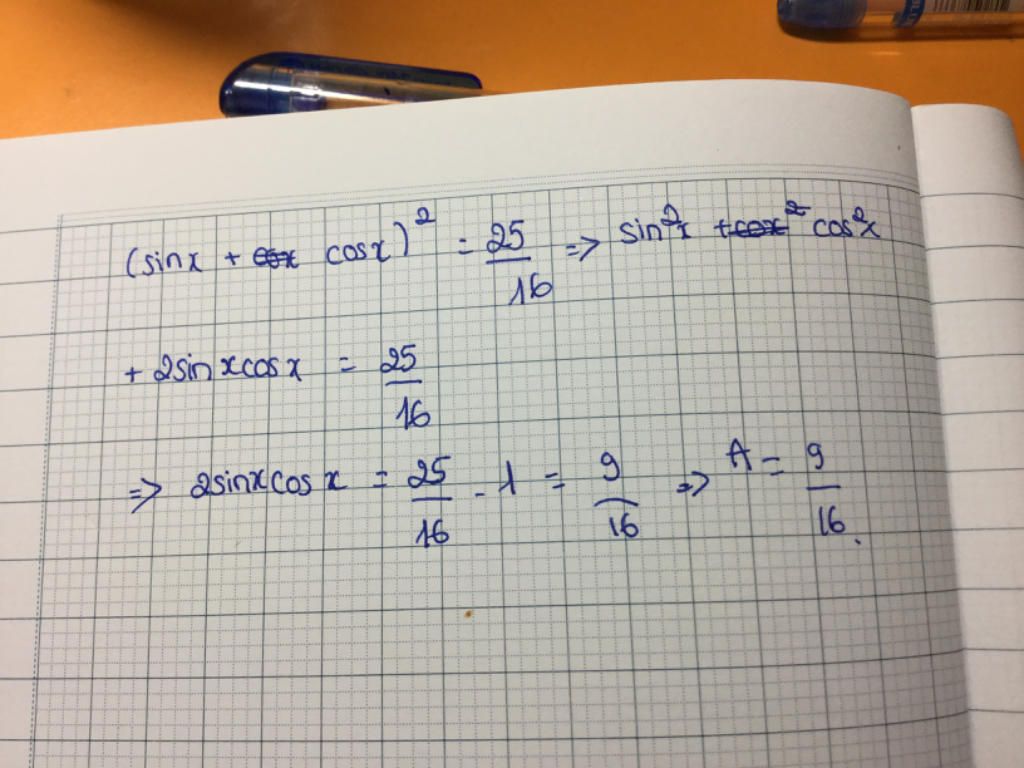 (sinx + cosx)² = 25/16 => sin²x + cos²x
+ 2sinxcosx = 25/16
=> 2sinxcosx = 25/16 - 1 = 9/16 => A = 9/16.